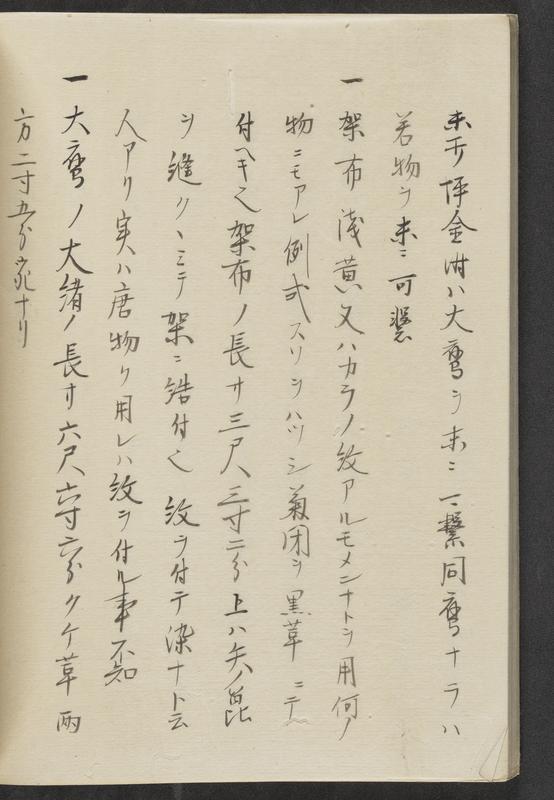 末ヲ 金泔ハ大鷹ヲ末ニ可繋同鷹ナラハ
若物ヲ末ニ可繋
一 架布浅黄又ハカラノ紋アルモメンナトヲ用何ノ
物ニモアレ例式スソヲハツシ菊閉ヲ黒革ニテ
付ヘキ也架布ノ長サ三尺三寸二分上ハ矢ノ
ヲ縫クヽミテ架ニ付也紋ヲ付テ染ナト云
人アリ実ハ唐物ヲ用レハ紋ヲ付ル事不知
一 大鷹ノ大緒ノ長サ六尺六寸六分クケ革両
方二寸五分宛ナリ